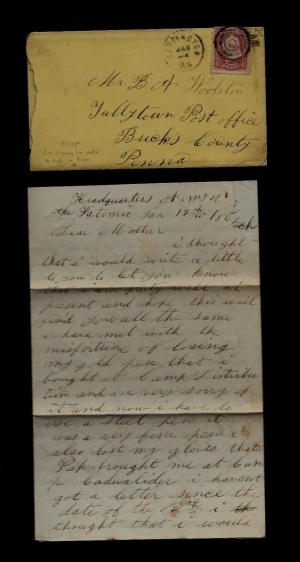 WASHINGTON
JAN
D.C.
Mr B A Woolston
Tullytown Post office
Bucks County
Penna
Headquarters Army of
the Potomac Jan 18th 186
Dear Mother
i thought
that i would write a little
to you to let you know
that i am party well at
present and hope this will
find you all the same
i have met with the
misfortune of losing
my gold pen that i
bought at Camp Distribu
tion and am very sorry of
it and now i have to
use a steel pen it
was a very fine pen i
also lost my gloves that
Pap brought me at Cam
p Cadwalider i havent
got a letter since the
date of the i
thought that i would